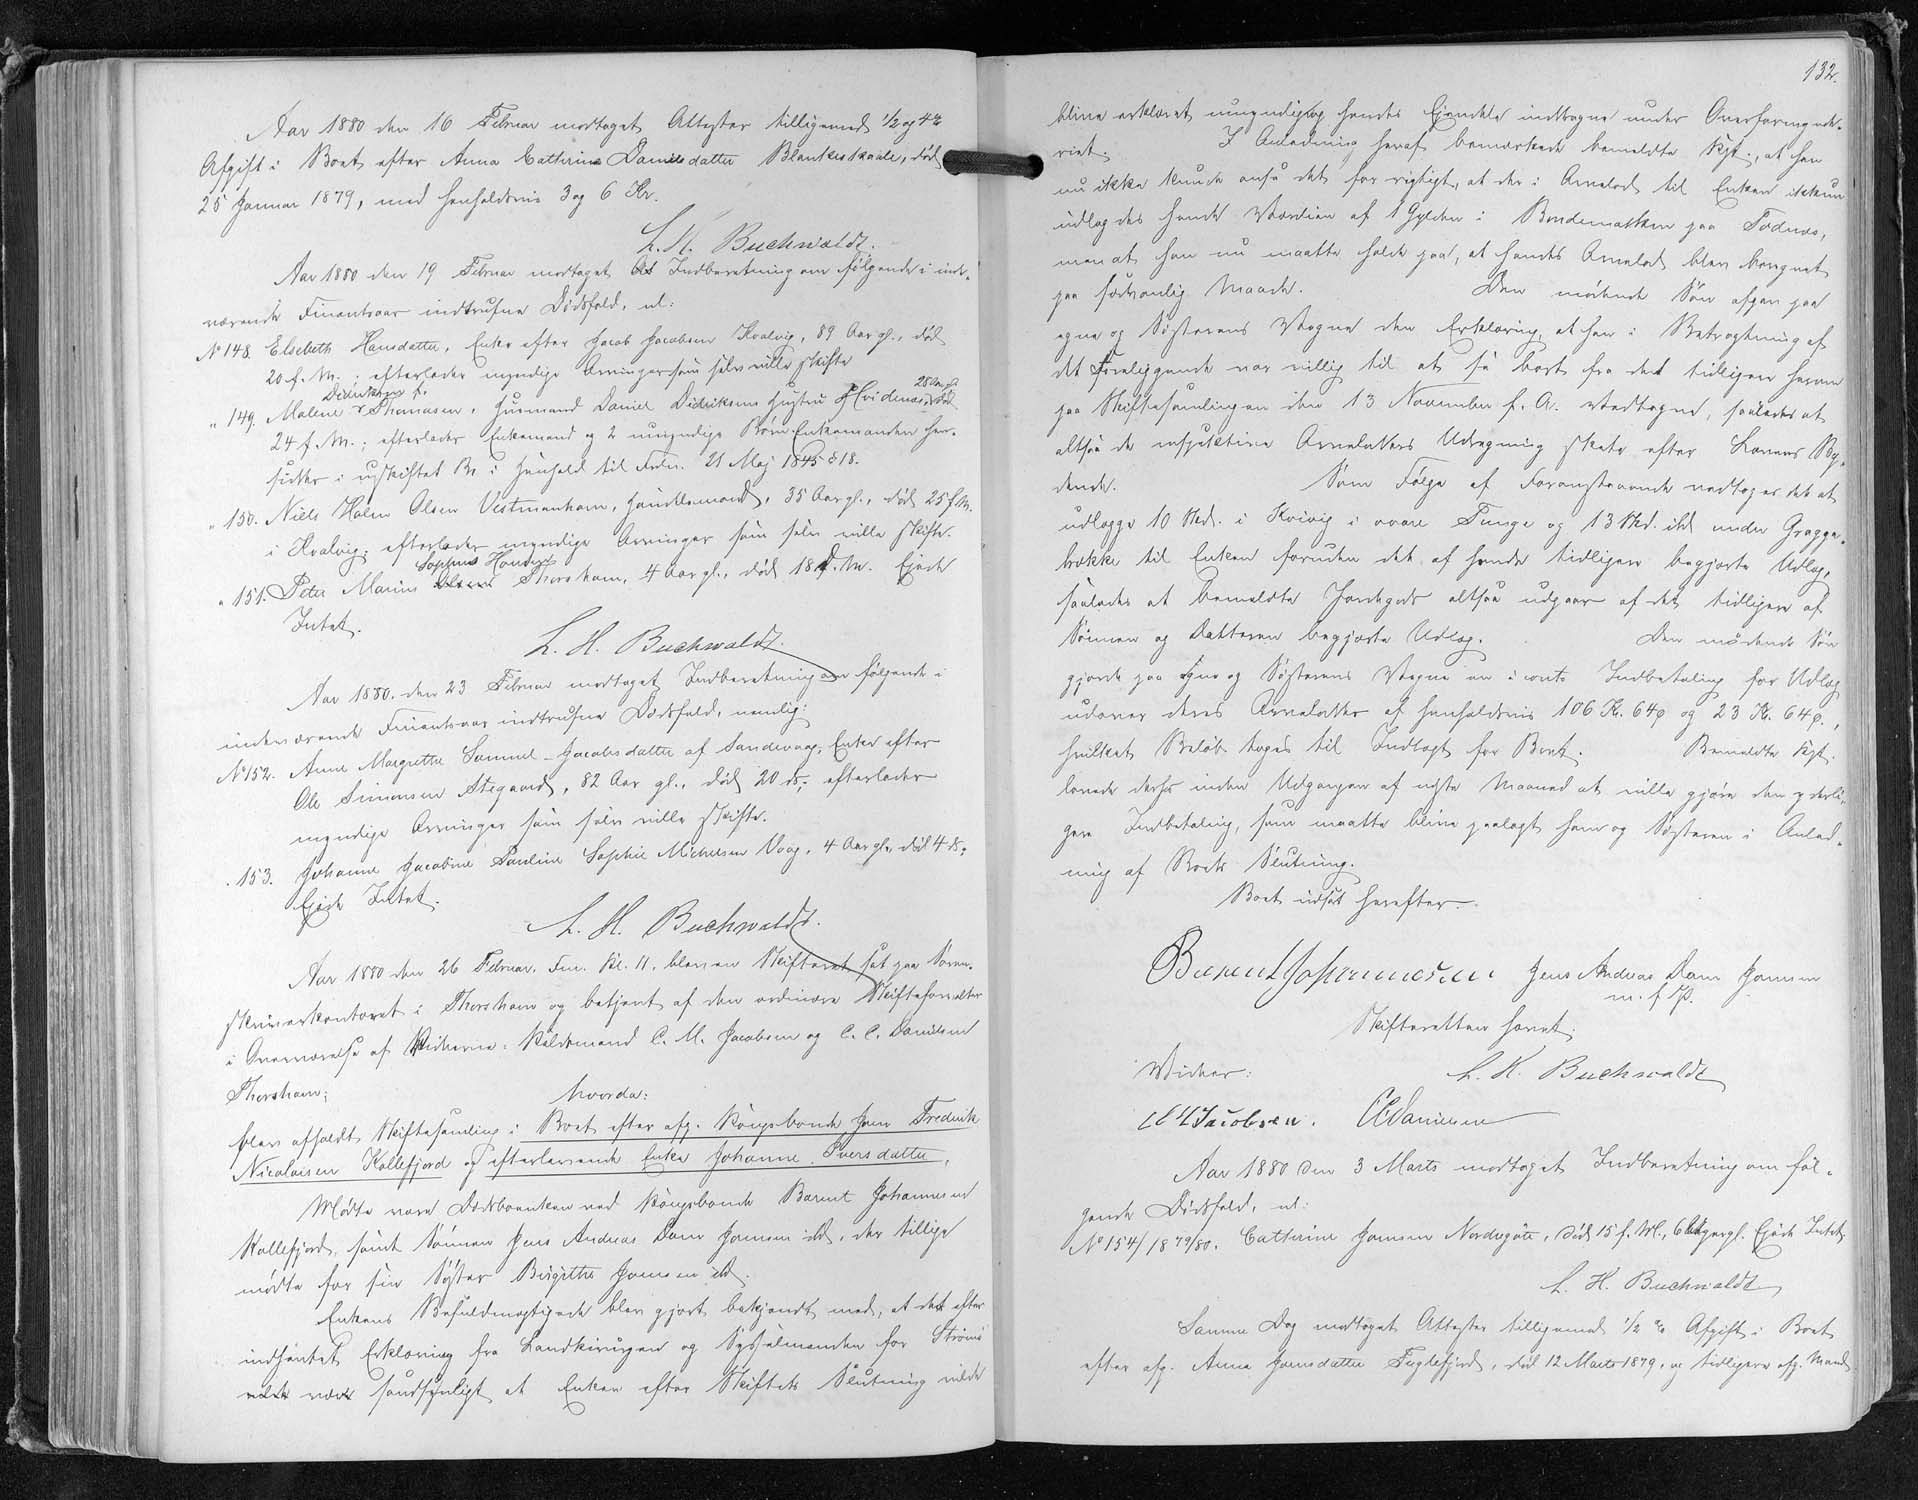 Aar 1880 den 16 Februar modtaget Attester tilligemed 1/2 og 4 %
Afgift i Boet efter Anna Cathrina Danielsdatter Blankeskaale, død
25 Januar 1879, med henholdsvis 3 og 6 Kr.
L. H. Buchwaldt.
Aar 1880 den 19 Februar modtaget Indberetning om følgende i inde-
værende Finantsaar indtrufne Dødsfald, nl:
No 148. Elsebeth Hansdatter, Enke efter Jacob Jacobsen Kvalvig, 89 Aar gl., død
20 f. M.; efterlader myndige Arvinger som selv ville skifte
Didriksen f.
" 149. Malene Thomasen, Husmand Daniel Didriksens Hustru Hvidenæs, 28 Aar gl., død
24 f. M.; efterlader Enkemand og 2 umyndige Børn. Enkemanden hen-
sidder i uskiftet Bo i Henhold til Frdn. 21 Maj 1845 § 18.
" 150. Niels Holm Olsen Vestmanhavn, Handelsmand, 35 Aar gl., død 25 f. M.
i Kvalvig; efterlader myndige Arvinger som selv ville skifte.
Sophus Hansen
" 151. Peter Marius Thorshavn, 4 Aar gl., død 18 d. M. Ejede
Intet.
L. H. Buchwaldt.
Aar 1880, den 23 Februar modtaget Indberetning om følgende i
indeværende Finantsaar indtrufne Dødsfald, nemlig:
No 152. Anne Margrethe Samuel-Jacobsdatter af Sandevaag, Enke efter
Ole Simonsen Stegaard, 82 Aar gl., død 20 ds; efterlader
myndige Arvinger som selv ville skifte.
" 153. Johanne Jacobine Pauline Sophie Michelsen Vaag, 4 Aar gl., død 4 ds;
Ejede Intet.
L. H. Buchwaldt.
Aar 1880 den 26 Februar, Fm. Kl. 11, blev en Skifteret sat paa Soren-
skriverkontoret i Thorshavn og betjent af den ordinære Skifteforvalter
i Overværelse af Vidnerne: Rådsmand C. M. Jacobsen og C. C. Danielsen
Thorshavn;
hvorda:
blev afholdt Skiftesamling i Boet efter afg. Kongsbonde Jens Fredrik
Nicolaisen Kollefjord og efterlevende Enke Johanne Iversdatter.
Mødte vare Dødsboenken ved Kongsbonde Barent Johannesen
Kollefjord, samt Sønnen Jens Andreas Dam Jensen ibd, der tillige
mødte for sin Søster Birgithe Jensen ibd.
Enkens Befuldmægtigede blev gjort bekjendt med, at det efter
indhentet Erklæring fra Landkirurgen og Sysselmanden for Strømø
være sandsynligt at Enken efter Skiftets Slutning vilde
132.
blive erklæret umyndig og hendes Ejendele indtagne under Overformynde-
riet. I Anledning heraf bemærkede bemeldte Kgb., at han
nu ikke kunde anse det for rigtigt, at der i Arvelod til Enken ikkun
udlagdes hende Værdien af 1 Gylden i Bondemarken paa Todnæs,
men at han nu maatte holde paa, at hendes Arvelod blev beregnet
paa sædvanlig Maade. Den mødende Søn afgav paa
egne og Søsterens Vegne den Erklæring, at han i Betragtning af
det Foreliggende var villig til at se bort fra det tidligere herom
paa Skiftesamlingen den 13 November f. A. vedtagne, saaledes at
altsaa de respektive Arvelodders Udregning skete efter Lovens By-
dende. Som Følge af Foranstaaende vedtoges det at
udlægge 10 Skd. i Kvivig i øvre Tunge og 13 Skd. ibd under Gragge-
brække til Enken foruden det af hende tidligere begjærte Udlæg,
saaledes at bemeldte Jordegods altsaa udgaar af det tidligere af
Sønnen og Datteren begjærte Udlæg. Den mødende Søn
gjorde paa Egne og Søsterens Vegne en i conto Indbetaling for Udlæg
udover deres Arvelodder af henholdsvis 106 K. 64 ø og 23 K. 64 ø.,
hvilket Beløb toges til Indtægt for Boet. Bemeldte Kgb.
lovede derhos inden Udgangen af næste Maaned at ville gjøre den yderli-
gere Indbetaling, som maatte blive paalagt ham og Søsteren i Anled-
ning af Boets Slutning.
Boet udsat herefter.
Barent Johannesen Jens Andreas Dam Jensen
m. f. P.
Skifteretten hævet.
Vidner: L. H. Buchwaldt
C M Jacobsen. C C Danielsen
Aar 1880 den 3 Marts modtaget Indberetning om føl-
gende Dødsfald, nl:
No 154/1879/80. Cathrine Joensen Nordregöte, død 15 f. M., 6 Uger gl. Ejede Intet.
L. H. Buchwaldt
Samme Dag modtaget Attester tilligemed 1/2 % Afgift i Boet
efter afg. Anna Joensdatter Fuglefjord, død 12 Marts 1879, og tidligere afg. Mand